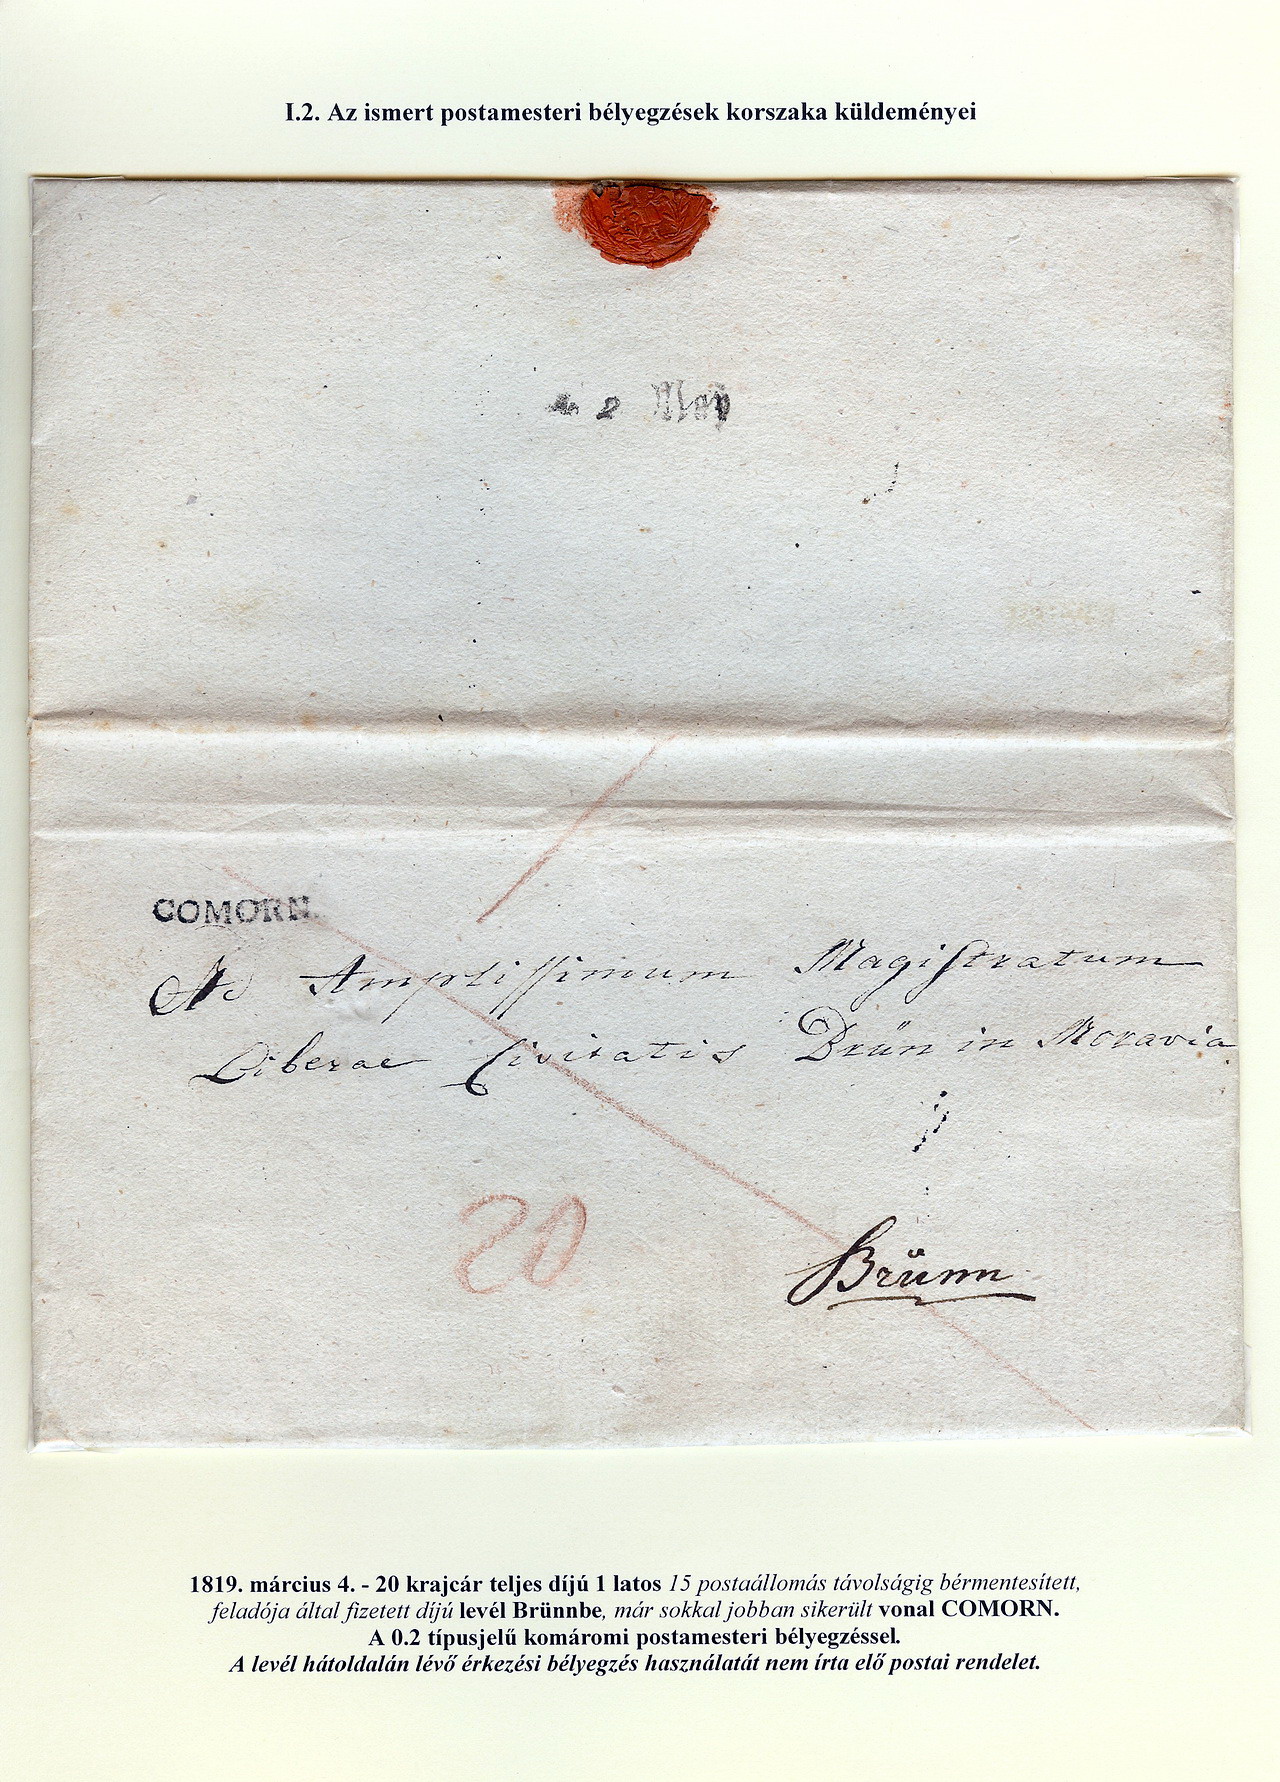 I.2. Az ismert postamesteri bélyegzések korszaka küldeményei
COMORN.
Ad Amplissimum Magistratum
Liberae Civitatis Brün in Moravia
20
Brünn
1819. március 4. - 20 krajcár teljes díjú 1 latos 15 postaállomás távolságig bérmentesített,
feladója által fizetett díjú levél Brünnbe, már sokkal jobban sikerült vonal COMORN.
A 0.2 típusjelű komáromi postamesteri bélyegzéssel.
A levél hátoldalán lévő érkezési bélyegzés használatát nem írta elő postai rendelet.